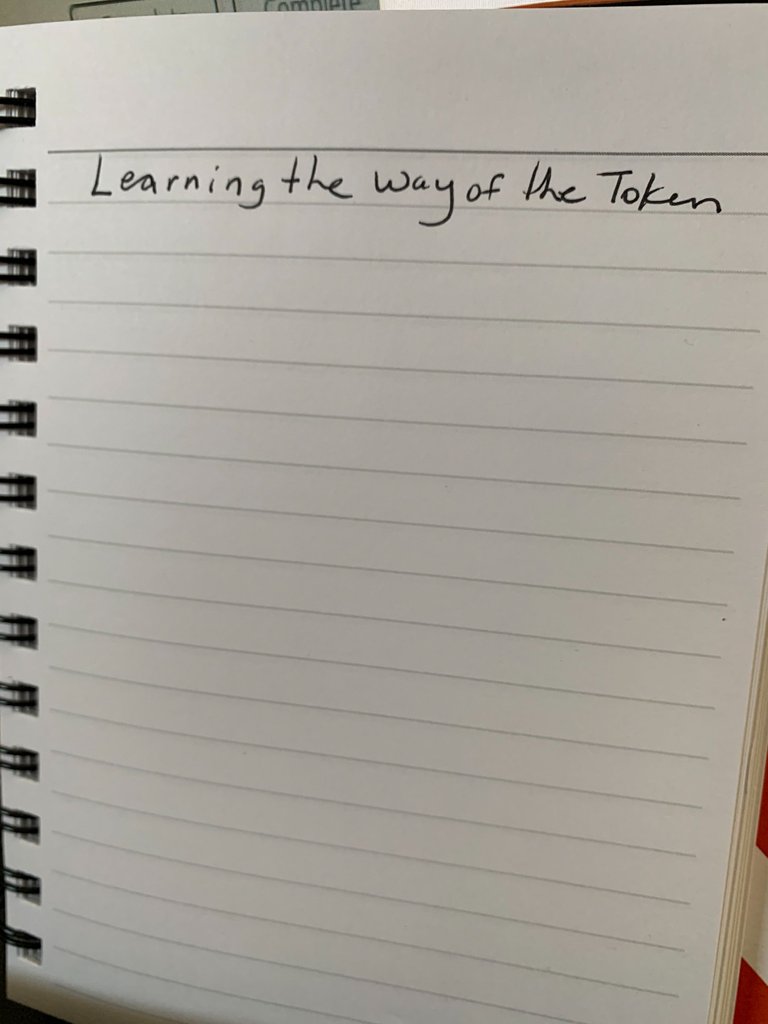 Complete
Learning the Way of the Token